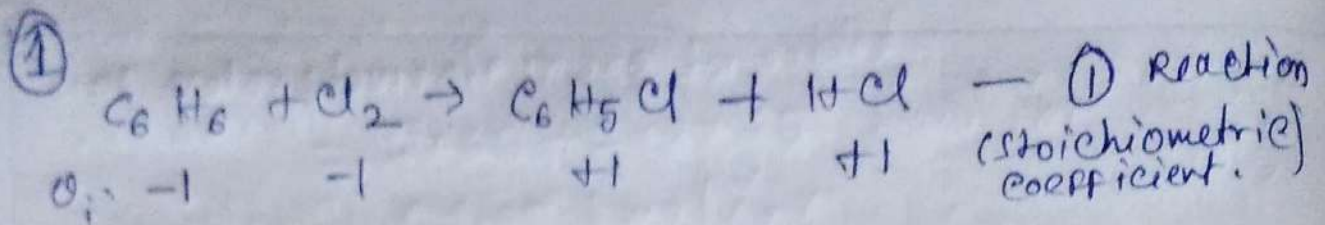 ①
C₆H₆ + Cl₂ → C₆H₅Cl + HCl — ① Reaction
ʋᵢ: -1 -1 +1 +1 (stoichiometric)
coefficient.